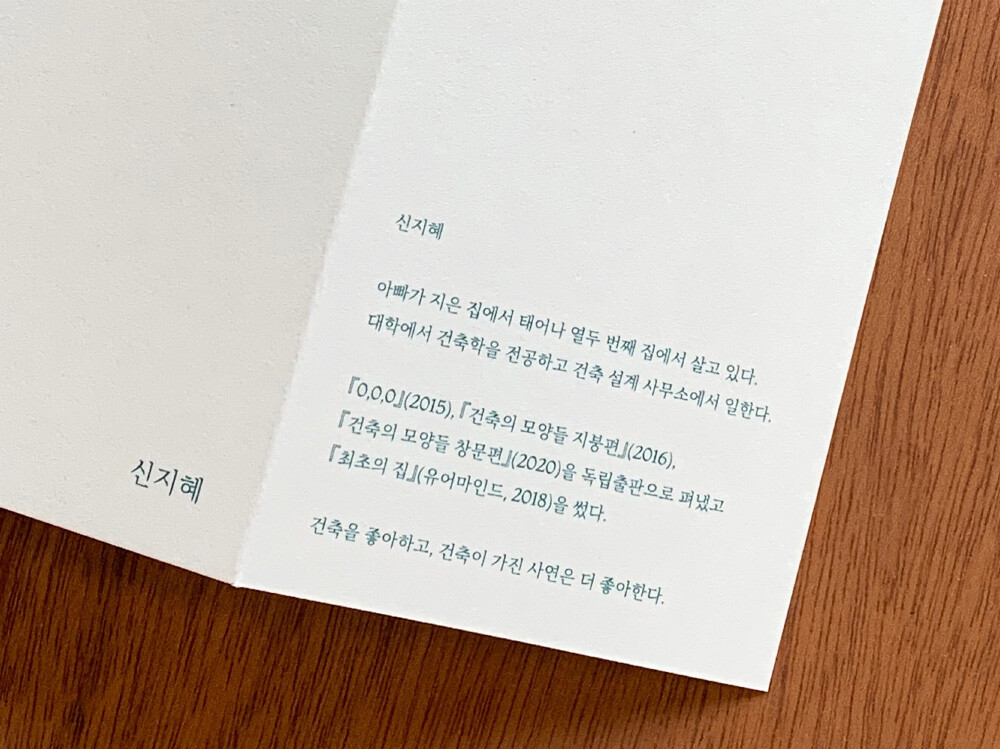 신지혜
신지혜
아빠가 지은 집에서 태어나 열두 번째 집에서 살고 있다.
대학에서 건축학을 전공하고 건축 설계 사무소에서 일한다.
『0,0,0』(2015), 『건축의 모양들 지붕편』(2016),
『건축의 모양들 창문편』(2020)을 독립출판으로 펴냈고
『최초의 집』(유어마인드, 2018)을 썼다.
건축을 좋아하고, 건축이 가진 사연은 더 좋아한다.